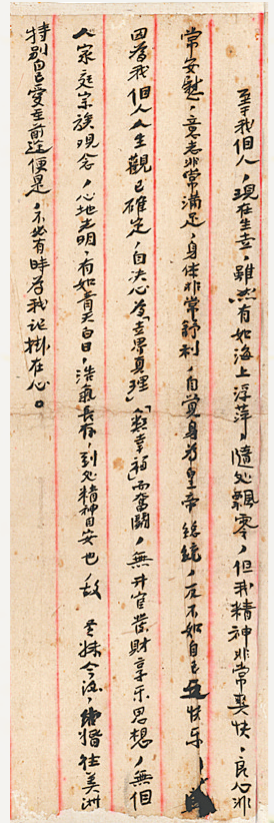 至于我個人，現在生meaning，雖然有如海上浮萍，隨处飄零，但我精神非常爽快，良心非
常安慰，意志非常滿足，身体非常舒利，自覚身为皇帝総統，反不如自己快乐
因為我個人人生觀已確定，自决心爲「世界真理」「群幸福」而奮鬪，無升官發財享乐思想，無個
人家庭宗族观念，心地光明，有如青天白日，浩氣長存，到处精神自安也 故 妹今後，惜往美洲
特別自己爱至前途便是，不必有時为我記掛在心。